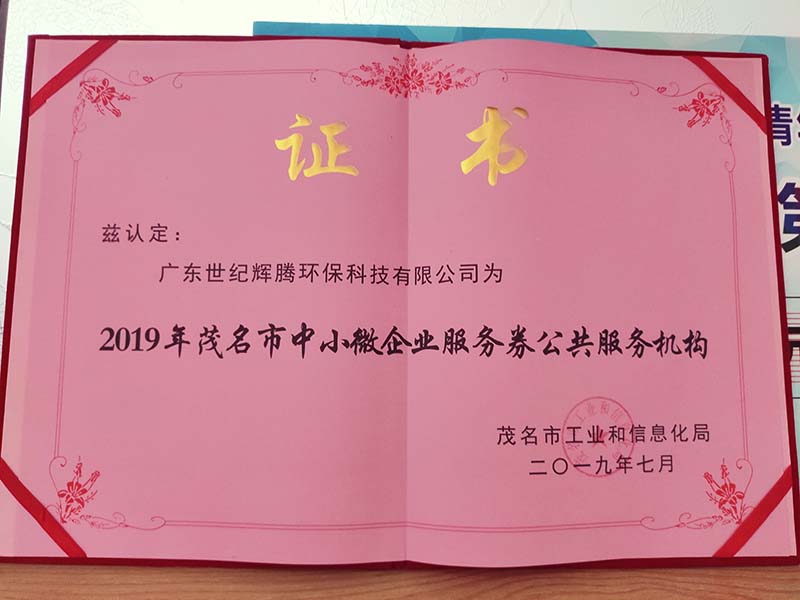 证书
兹认定：
广东世纪辉腾环保科技有限公司为
2019年茂名市中小微企业服务券公共服务机构
茂名市工业和信息化局
二〇一九年七月